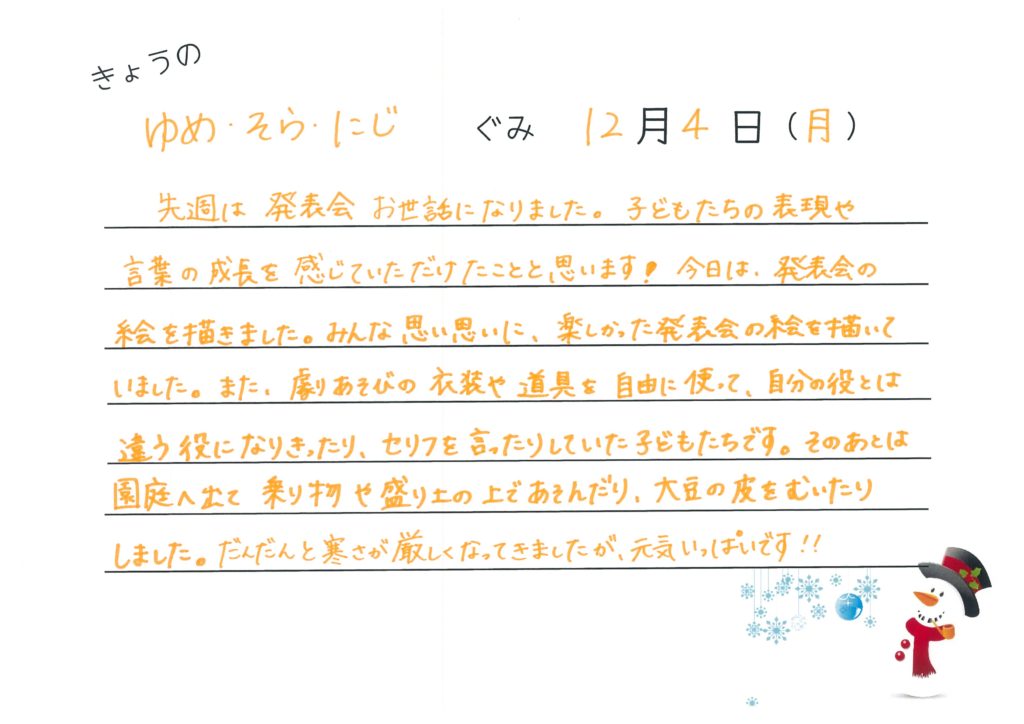 きょうの
ゆめ・そら・にじ ぐみ 12月4日(月)
先週は 発表会 お世話になりました。子どもたちの表現や
言葉の成長を感じていただけたことと思います！ 今日は、発表会の
絵を描きました。みんな思い思いに、楽しかった発表会の絵を描いて
いました。また、劇りあそびの衣装や道具を自由に使って、自分の役とは
違う役になりきったり、セリフを言ったりしていた子どもたちです。そのあとは
園庭へ出て 乗り物や盛り土の上であそんだり、大豆の皮をむいたり
しました。だんだんと寒さが厳しくなってきましたが、元気いっぱいです!!